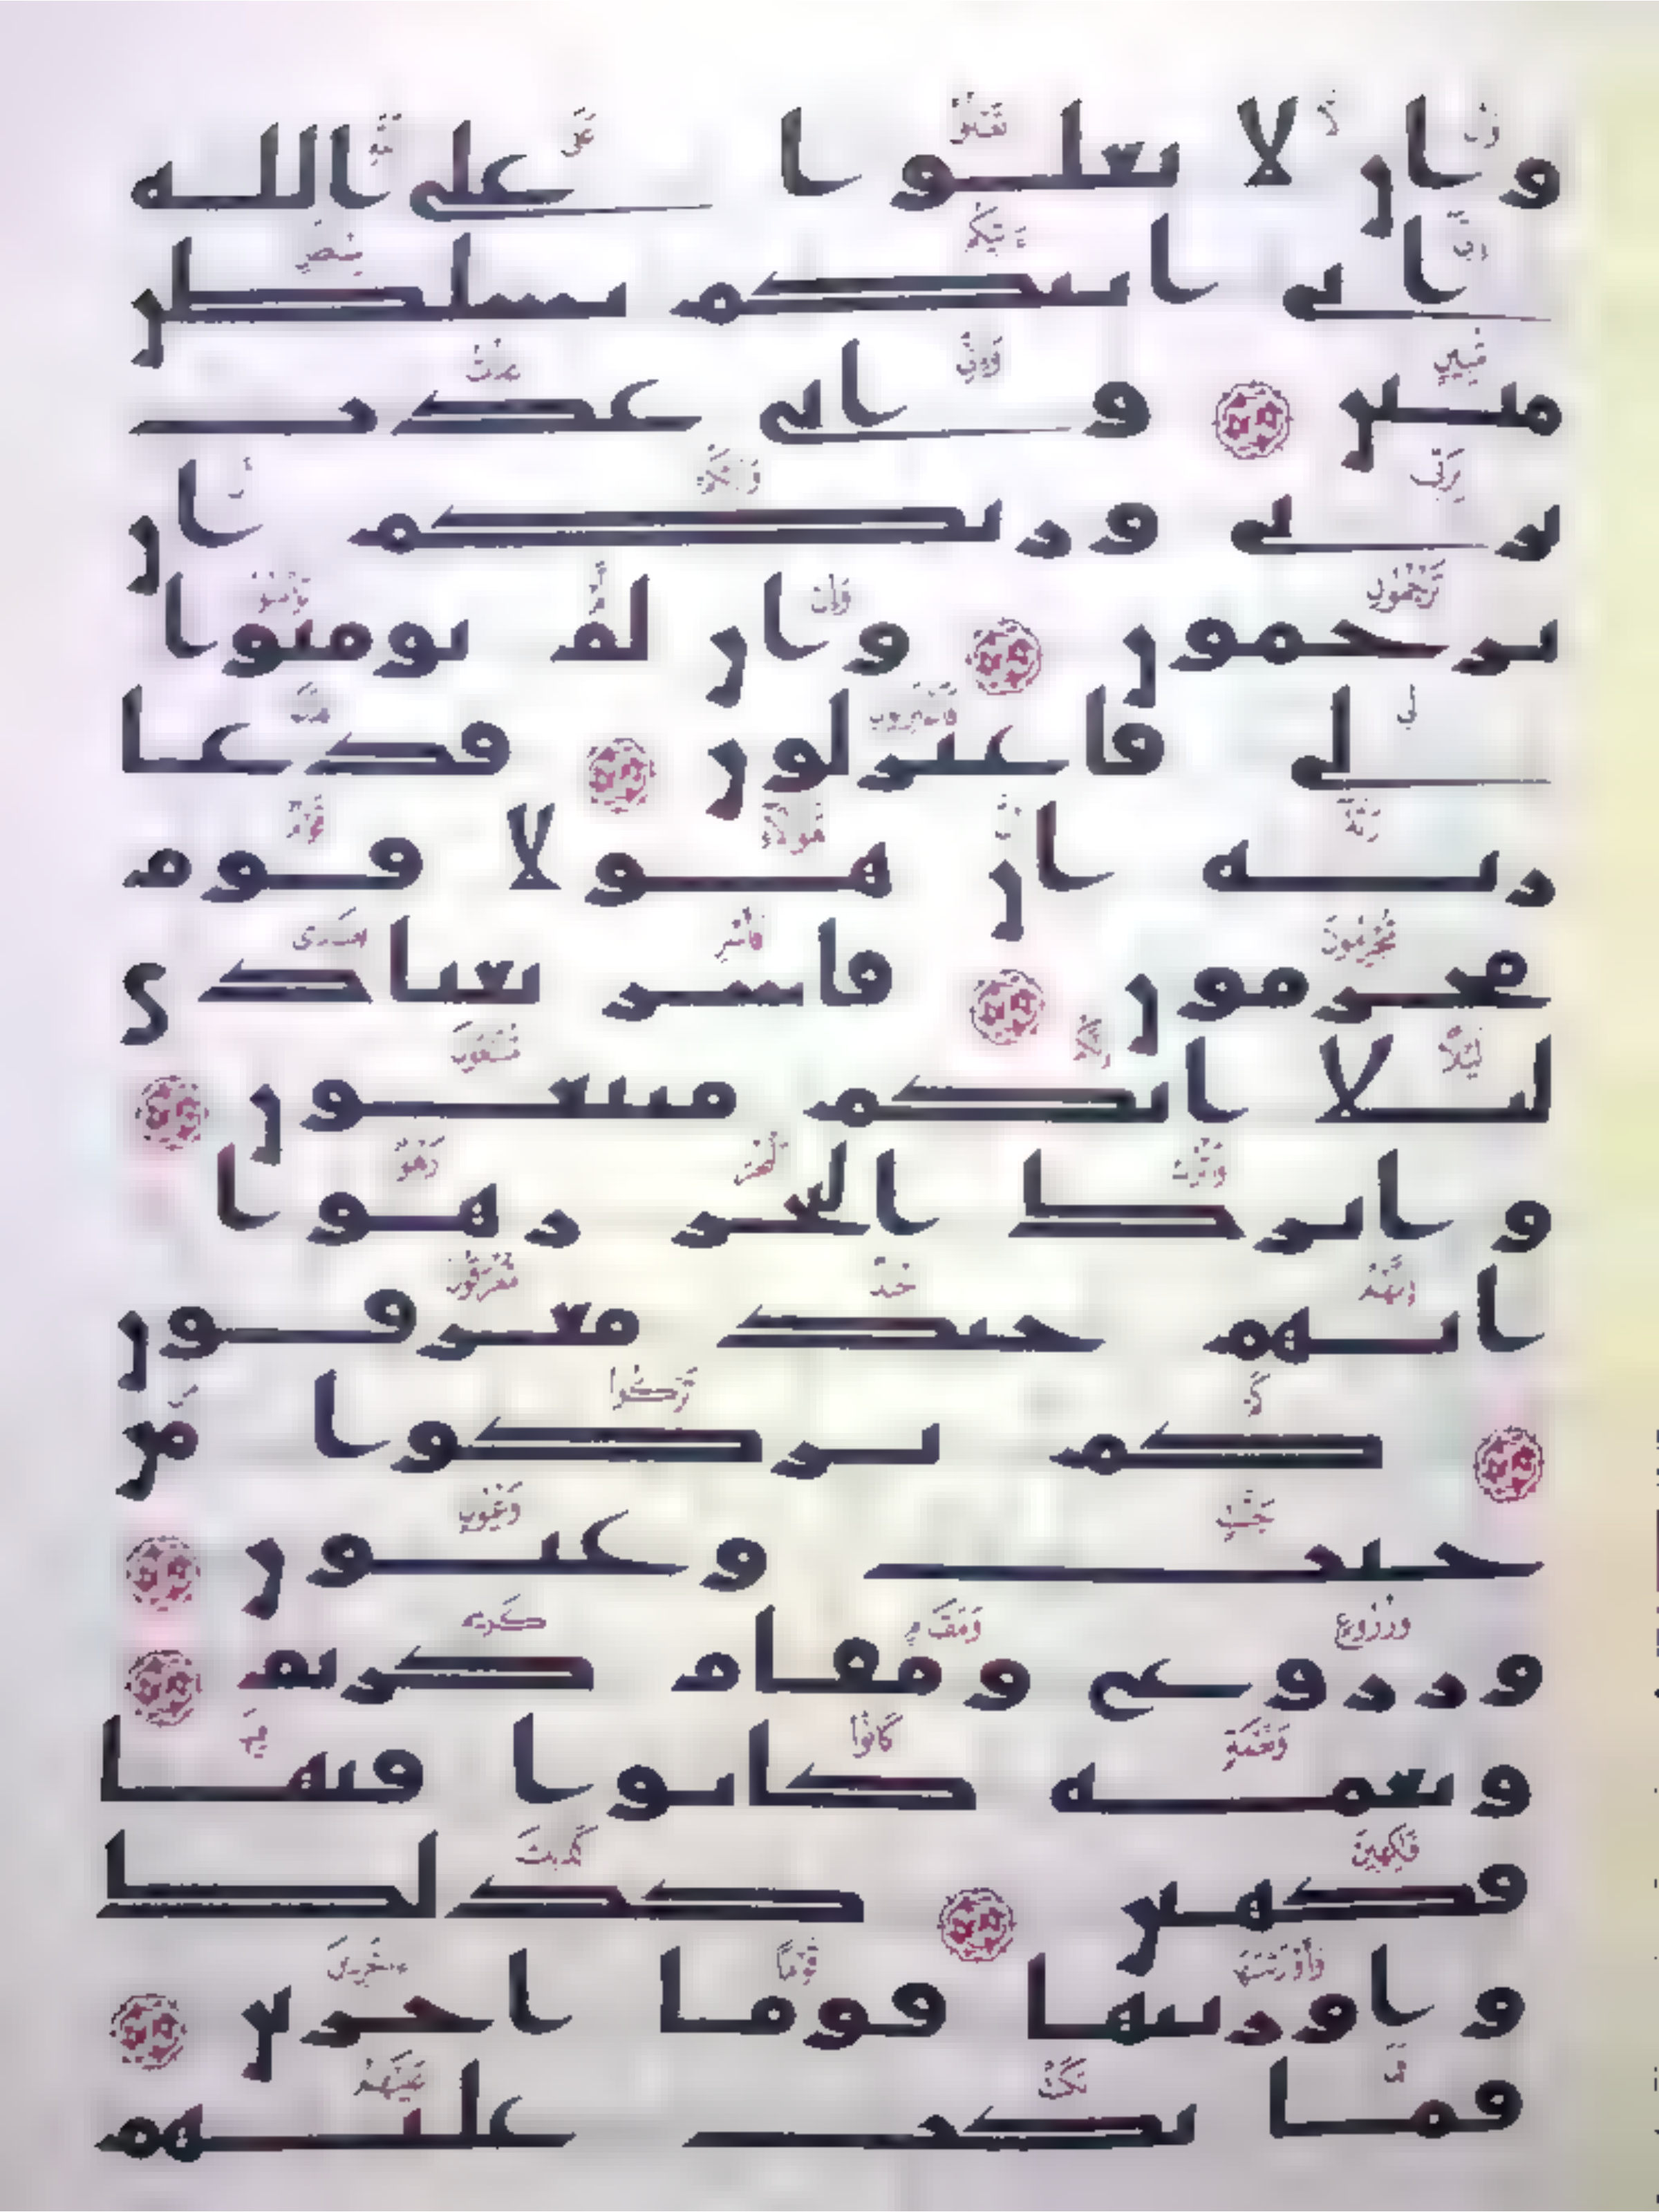 وان لا تعلوا على الله
انى اتيكم بسلطن
مبين وانى عذت
بربى وربكم ان
ترجمون وان لم تومنوا
لى فاعتزلون فدعا
ربه ان هولا قوم
مجرمون فاسر بعبادى
ليلا انكم متبعون
واترك البحر رهوا
انهم جند مغرقون
كم تركوا من
جنت وعيون
وزروع ومقام كريم
ونعمة كانوا فيها
فكهين كذلك
واورثنها قوما اخرين
فما بكت عليهم